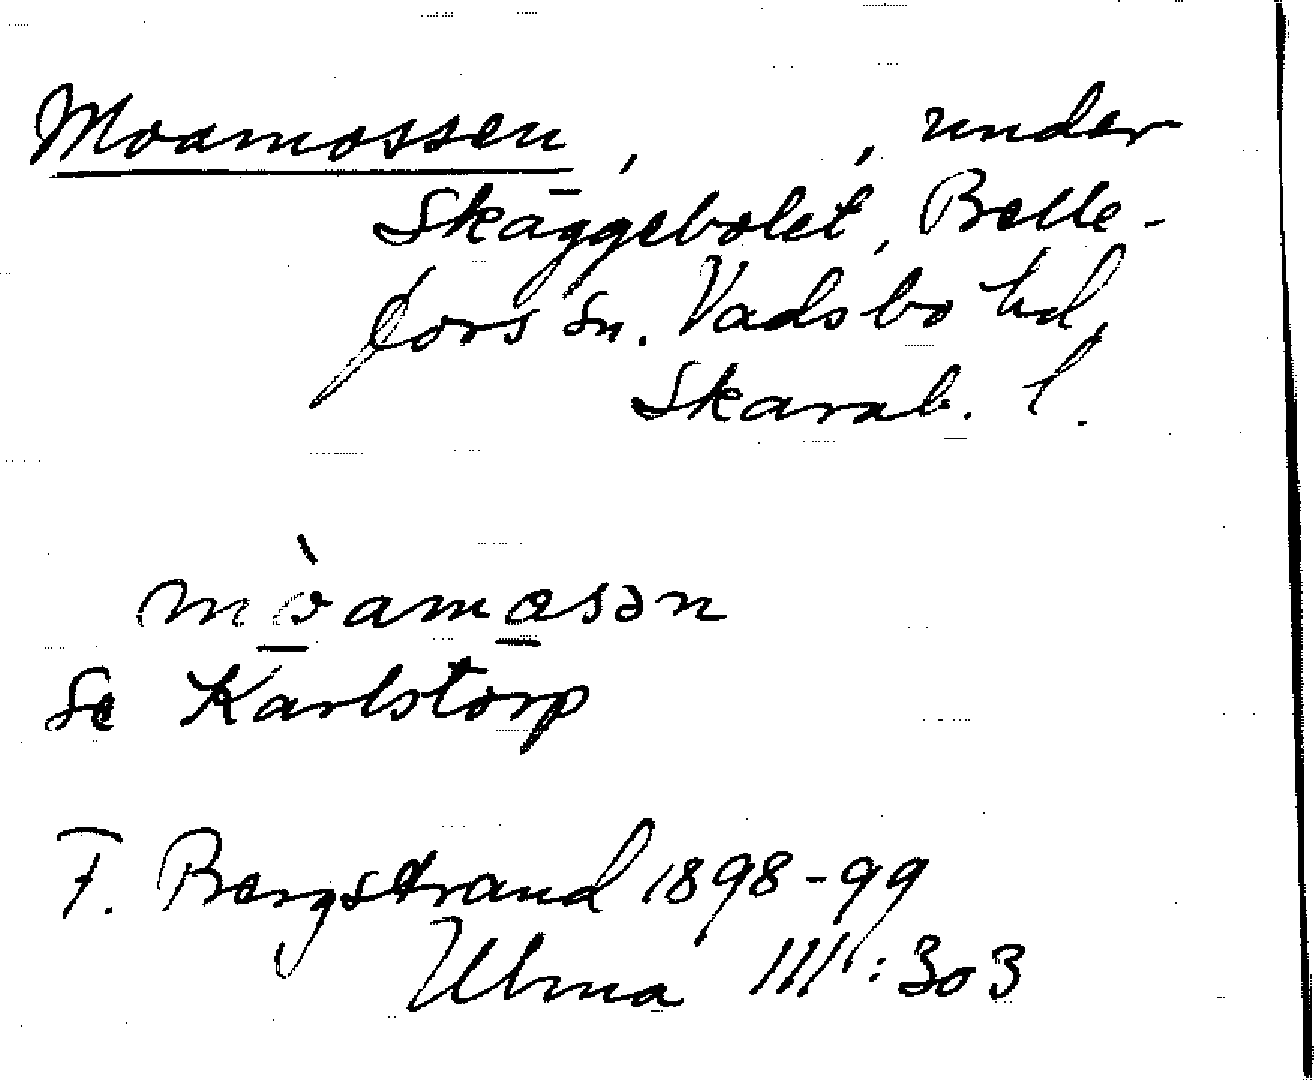 Moamossen, , under
Skäggebolet, Bälle-
fors sn. Vadsbo hd,
Skarab. l.
mòamosən
Se Karlstorp
F. Bergstrand 1898-99
Ulma 111:303